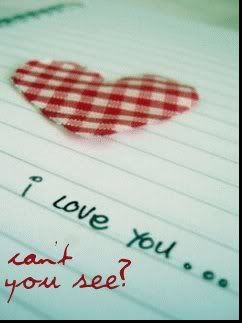 i love you...
can't
you see?